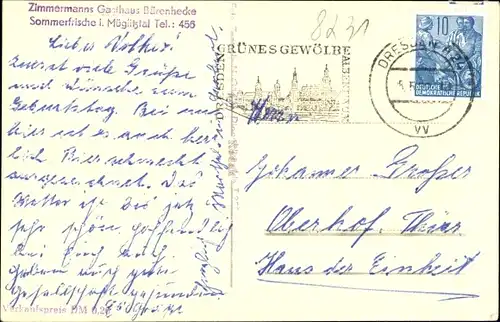 Zimmermanns Gasthaus Bärenhecke
Sommerfrische i. Müglitztal Tel.: 456
8d31
Lieber Volker!
zuerst viele Grüße
und Wünsche zum
Geburtstag. Bei uns
hier ist es auch herr
lich. Bier schmeckt
ausgezeichnet. Das
Wetter ist bis jetzt
sehr schön, 
bei Euch auch.
Haben auch gute
Gesellschaft gefunden.
Es grüßt
Verkaufspreis DM 0,20
DRESDEN GRÜNES GEWÖLBE
ALBERTINUM
DRESDEN
vv
10
DEUTSCHE
DEMOKRATISCHE REPUBLIK
Herrn
Johannes Großer
Oberhof, Thür.
Haus der Einheit